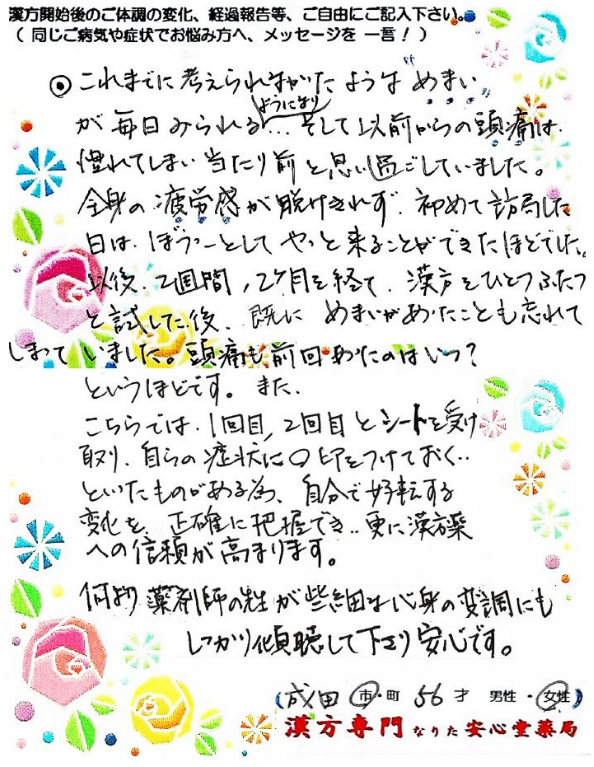 漢方開始後のご体調の変化、経過報告等、ご自由にご記入下さい。
(同じご病気や症状でお悩み方へ、メッセージを一言!)
◎これまでに考えられなかたようなめまい
が毎日みられるようになり…そして以前からの頭痛は、
慣れてしまい当たり前と思い過ごしていました。
全身の疲労感が脱けきれず、初めて訪局した
日は、ぼうーっとしてやっと来ることができたほどでした。
以後、2週間、2ヶ月を経て、漢方をひとつふたつ
と試した後、既にめまいがあったことも忘れて
しまっていました。頭痛も前回あったのはいつ?
というほどです。また、
こちらでは、1回目、2回目とシートを受け
取り、自らの症状に○印をつけておく..
といったものがある為、自分で好転する
変化を、正確に把握でき..更に漢方薬
への信頼が高まります。
何より薬剤師の先生が些細な心身の変調にも
しっかり傾聴して下さり安心です。
(成田 市・町 56才 男性・女性)
漢方専門なりた安心堂薬局